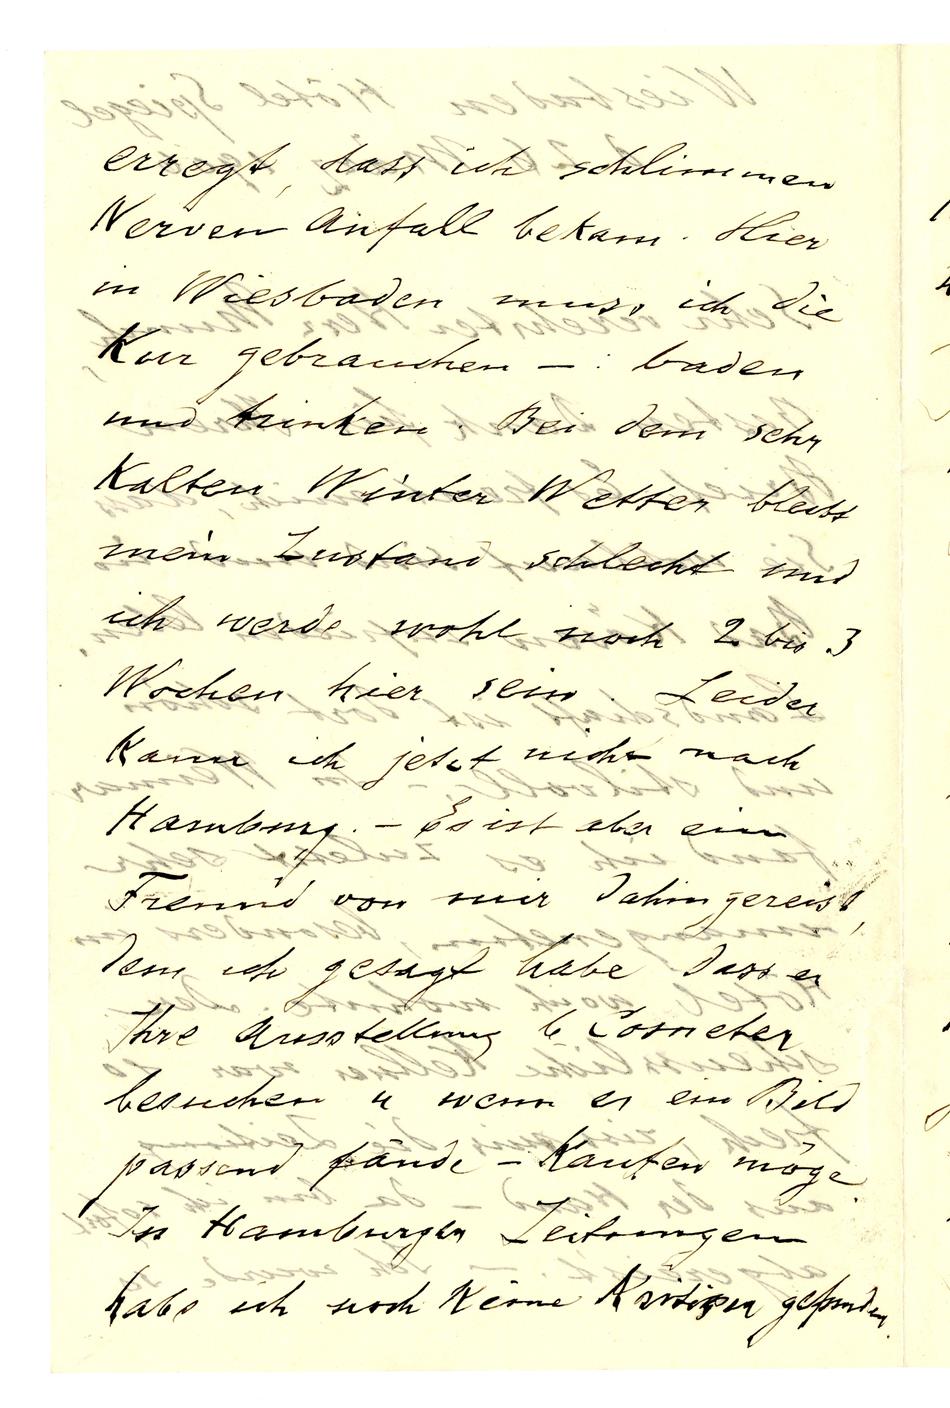 erregt, dass ich schlimmen
Nerven Anfall bekam. Hier
in Wiesbaden muss ich die
Kur gebrauchen – : baden
und trinken. Bei dem sehr
Kalten Winter Wetter bleibt
mein Zustand schlecht und
ich werde wohl noch 2 bis 3
Wochen hier sein. Leider
Kann ich jetzt nicht nach
Hamburg. – Es ist aber ein
Freund von mir dahin gereist,
dem ich gesagt habe dass er
Ihre Ausstellung b Cosmeter
besuchen u wenn er ein Bild
passend fände – Kaufen möge.
In Hamburger Zeitungen
habe ich noch Keine Kritiken gefunden.